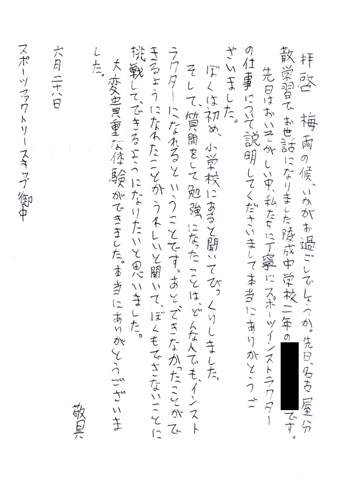 拝啓 梅雨の候、いかがお過ごしでしょうか。先日、名古屋分
散学習でお世話になりました陵成中学校二年の です。
先日はおいそがしい中、私たちに丁寧にスポーツインストラクター
の仕事について説明してくださいまして本当にありがとうご
ざいました。
ぼくは初め、小学校にあると聞いてびっくりしました。
そして、質問をして勉強になったことは、どんな人でも、インスト
ラクターになれるということです。あと、できなかったことがで
きるようになれたことがうれしいと聞いて、ぼくもできないことに
挑戦して、できるようになりたいと思いました。
大変貴重な体験ができました。本当にありがとうございま
した。
敬具
六月二十八日
スポーツファクトリースタッフ御中